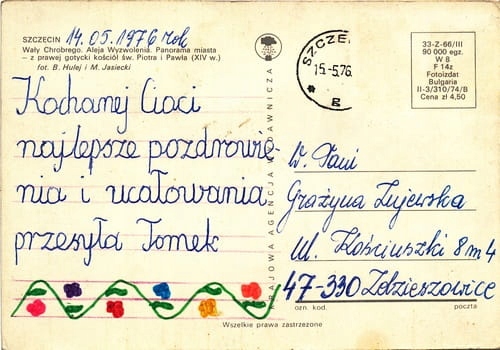 SZCZECIN 14.05.1976 rok
Wały Chrobrego. Aleja Wyzwolenia. Panorama miasta
– z prawej gotycki kościół św. Piotra i Pawła (XIV w.)
fot. B. Hulej i M. Jasiecki
Kochanej Cioci
najlepsze pozdrowie-
nia i ucałowania
przesyła Tomek
KRAJOWA AGENCJA WYDAWNICZA
SZCZE
15.-5.76
g
33-Z-66/III
90 000 egz.
W 8
F 14z
Fotoizdat
Bulgaria
II-3/310/74/B
Cena zł 4,50
W. Pani
Grażyna Zujewska
ul. Kościuszki 8 m 4
47-330 Zdzieszowice
ozn. kod. poczta
Wszelkie prawa zastrzeżone